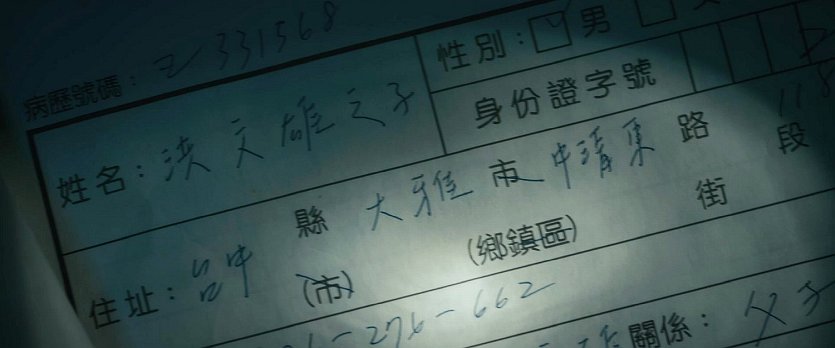 病歷號碼：331568
性別：男
姓名：洪文雄之子
身份證字號
住址：台中縣(市)大雅市(鄉鎮區)中清東路街段
-276-662
關係：父子